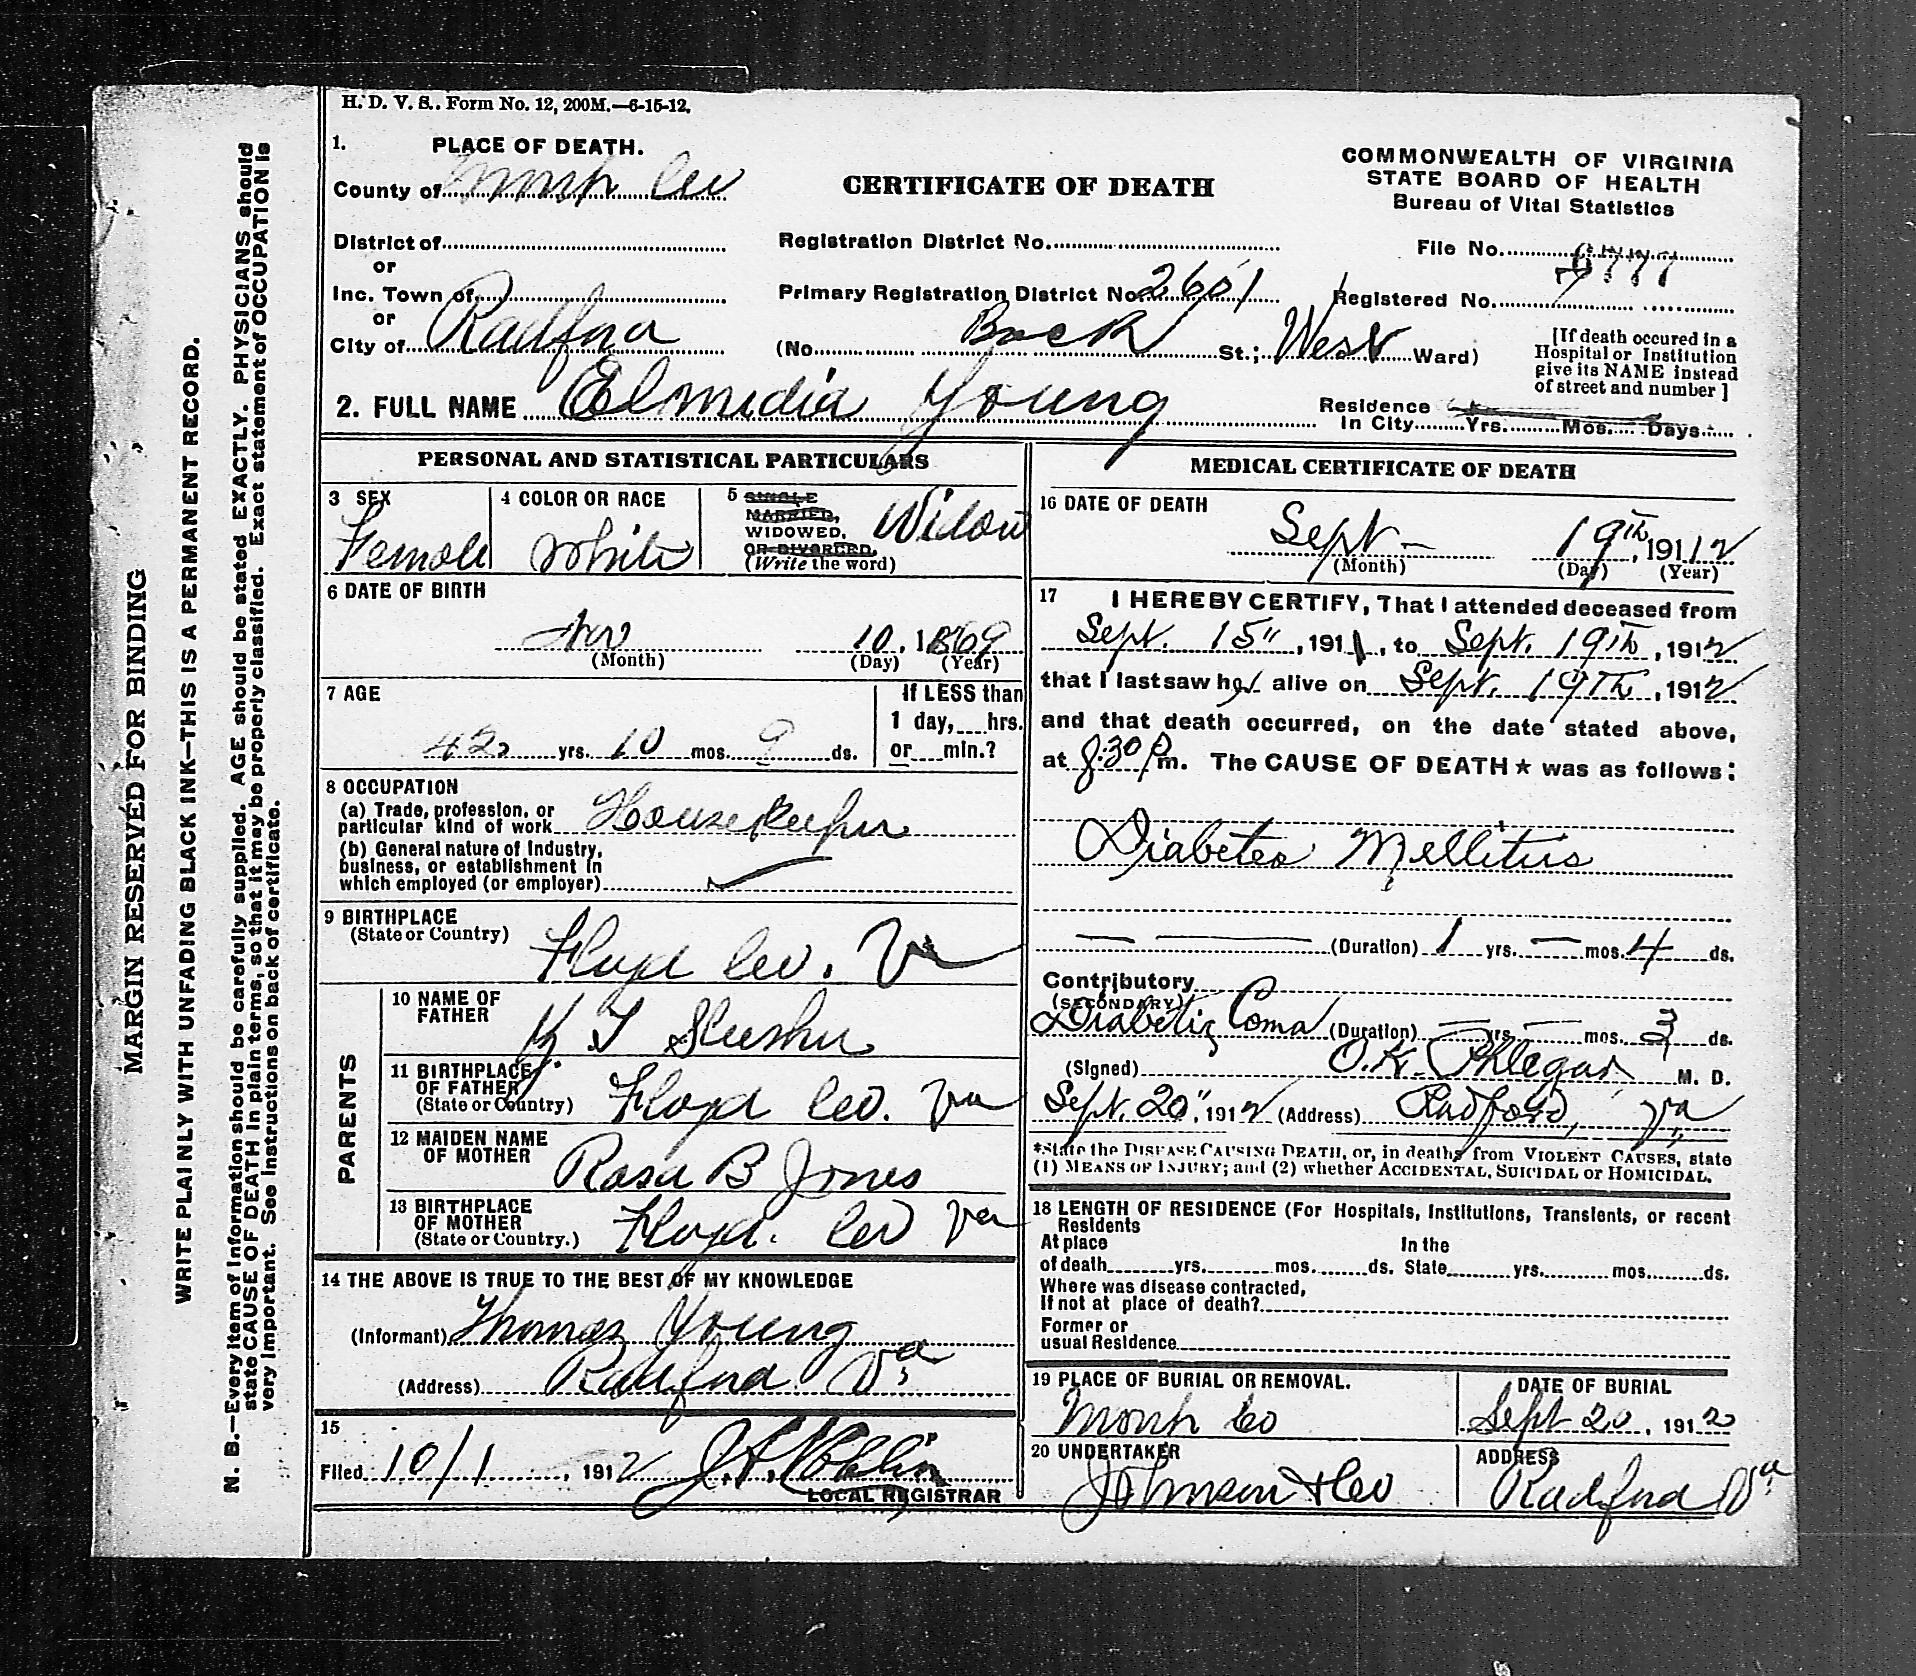 H. D. V. S.. Form No. 12, 200M.—6-15-12.
1. PLACE OF DEATH.
County of Co
CERTIFICATE OF DEATH
COMMONWEALTH OF VIRGINIA
STATE BOARD OF HEALTH
Bureau of Vital Statistics
District of
or
Registration District No.
File No.
Inc. Town of
or
Primary Registration District No. 2601
Registered No.
City of Radford
(No. St.; West Ward)
[If death occured in a
Hospital or Institution
give its NAME instead
of street and number]
2. FULL NAME Elmidia Young
Residence
In City Yrs. Mos. Days
PERSONAL AND STATISTICAL PARTICULARS
3 SEX
Female
4 COLOR OR RACE
White
5 SINGLE
MARRIED,
WIDOWED,
OR DIVORCED,
(Write the word)
Widow
6 DATE OF BIRTH
Nov 10, 1869
(Month) (Day) (Year)
7 AGE
42 yrs. 10 mos. 9 ds.
If LESS than
1 day, hrs.
or min.?
8 OCCUPATION
(a) Trade, profession, or
particular kind of work Housekeeper
(b) General nature of Industry,
business, or establishment in
which employed (or employer)
9 BIRTHPLACE
(State or Country)
Floyd Co. Va
PARENTS
10 NAME OF
FATHER
T Slusher
11 BIRTHPLACE
OF FATHER
(State or Country)
Floyd Co. Va
12 MAIDEN NAME
OF MOTHER
Rosa B Jones
13 BIRTHPLACE
OF MOTHER
(State or Country.)
Floyd. Co Va
14 THE ABOVE IS TRUE TO THE BEST OF MY KNOWLEDGE
(Informant) Thomas Young
(Address) Radford Va
15
Filed 10/1, 1912
LOCAL REGISTRAR
MEDICAL CERTIFICATE OF DEATH
16 DATE OF DEATH
Sept - 19th, 1912
(Month) (Day) (Year)
17 I HEREBY CERTIFY, That I attended deceased from
Sept. 15", 191, to Sept. 19th, 1912
that I last saw her alive on Sept. 19th, 1912
and that death occurred, on the date stated above,
at 8:30 P m. The CAUSE OF DEATH★ was as follows:
Diabetes Mellitus
(Duration) 1 yrs. — mos. 4 ds.
Contributory
(SECONDARY)
Diabetic Coma (Duration) — yrs. — mos. 3 ds.
(Signed) O. K. Phlegar M. D.
Sept. 20", 1912 (Address) Radford, Va
*State the DISEASE CAUSING DEATH, or, in deaths from VIOLENT CAUSES, state
(1) MEANS OF INJURY; and (2) whether ACCIDENTAL, SUICIDAL or HOMICIDAL.
18 LENGTH OF RESIDENCE (For Hospitals, Institutions, Transients, or recent
Residents
At place
of death yrs. mos. ds.
In the
State yrs. mos. ds.
Where was disease contracted,
If not at place of death?
Former or
usual Residence
19 PLACE OF BURIAL OR REMOVAL.
Co
DATE OF BURIAL
Sept 20, 1912
20 UNDERTAKER
Johnson & Co
ADDRESS
Radford Va
MARGIN RESERVED FOR BINDING
WRITE PLAINLY WITH UNFADING BLACK INK—THIS IS A PERMANENT RECORD.
N. B.—Every item of information should be carefully supplied. AGE should be stated EXACTLY. PHYSICIANS should
state CAUSE OF DEATH in plain terms, so that it may be properly classified. Exact statement of OCCUPATION is
very important. See instructions on back of certificate.